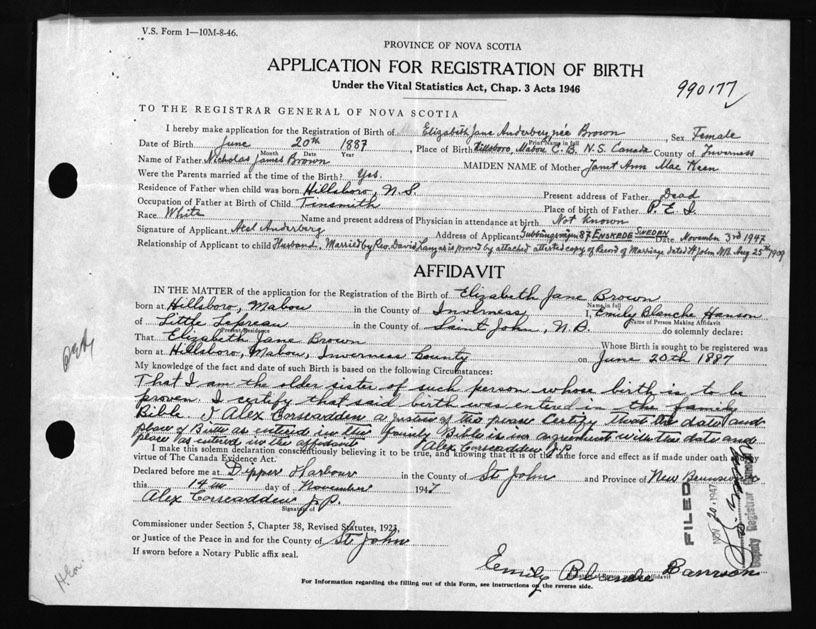 V.S. Form 1—10M-8-46.
PROVINCE OF NOVA SCOTIA
APPLICATION FOR REGISTRATION OF BIRTH
Under the Vital Statistics Act, Chap. 3 Acts 1946
990177
TO THE REGISTRAR GENERAL OF NOVA SCOTIA
I hereby make application for the Registration of Birth of Elizabeth Jane Anderberg née Brown, Sex Female
Print Name in full
Date of Birth June 20th 1887, Place of Birth Hillsboro, Mabou C.B. N.S. Canada County of Inverness
Month Date Year
Name of Father Nicholas James Brown MAIDEN NAME of Mother Janet Ann Mac Keen
Were the Parents married at the time of the Birth? Yes.
Residence of Father when child was born Hillsboro, N.S. Present address of Father Dead
Occupation of Father at Birth of Child Tinsmith Place of birth of Father P.E.I.
Race White Name and present address of Physician in attendance at birth Not Known
Signature of Applicant Axel Anderberg Address of Applicant 87 ENSKEDE SWEDEN Date November 3rd 1947
Relationship of Applicant to child Husband. Married by Rev. David Lang as is proved by attached attested copy of Record of Marriage dated St John NB. Aug 25th 1909
AFFIDAVIT
IN THE MATTER of the application for the Registration of Birth of Elizabeth Jane Brown
Name in full
born at Hillsboro, Mabou in the County of Inverness I, Emily Blanche Hanson
Name of Person Making Affidavit
of Little Lepreau in the County of Saint John, N.B. do solemnly declare:
Present Residence
That Elizabeth Jane Brown Whose Birth is sought to be registered was
born at Hillsboro, Mabou, Inverness County on June 20th 1887
My knowledge of the fact and date of such Birth is based on the following Circumstances:
That I am the older sister of such person whose birth is to be
proven. I certify that said birth was entered in the family
Bible. I Alex Corscadden a Justice of the peace Certify That the date and
place of Birth as entered in the family Bible is in agreement with the date and
place as entered in the affidavit Alex Corscadden J.P
I make this solemn declaration conscientiously believing it to be true, and knowing that it is of the same force and effect as if made under oath by
virtue of The Canada Evidence Act.
Declared before me at Dipper Harbour in the County of St John and Province of New Brunswick
this 14th day of November 1947
Alex Corscadden J.P.
Signature of
Commissioner under Section 5, Chapter 38, Revised Statutes, 1923,
or Justice of the Peace in and for the County of St John
If sworn before a Notary Public affix seal.
Emily Blanche Hanson
For Information regarding the filling out of this Form, see instructions on the reverse side.
FILED
NOV 20 1947
Deputy Registrar General